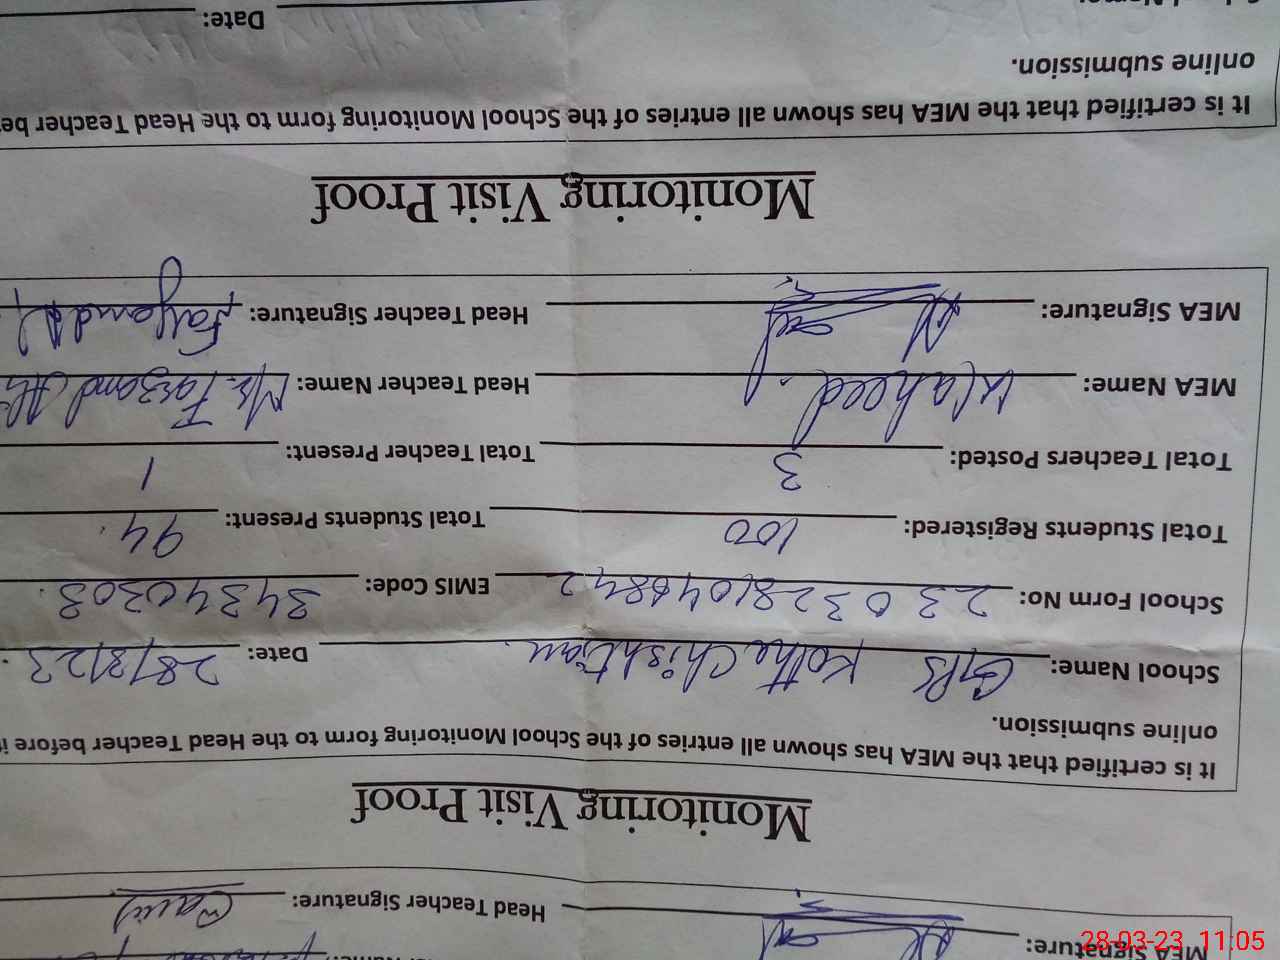 MEA Signature: Head Teacher Signature:
Monitoring Visit Proof
It is certified that the MEA has shown all entries of the School Monitoring form to the Head Teacher before
online submission.
School Name: GPS Kotha Chishtian Date: 28/3/23
School Form No: EMIS Code:
Total Students Registered: 100 Total Students Present: 94
Total Teachers Posted: 3 Total Teacher Present: 1
MEA Name: Waheed Head Teacher Name: Mr. Farzand Ali
MEA Signature: Head Teacher Signature: Farzand
Monitoring Visit Proof
It is certified that the MEA has shown all entries of the School Monitoring form to the Head Teacher
online submission.
Date:
28-03-23 11:05